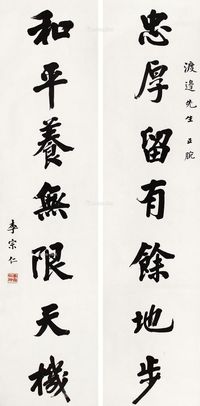 渡邉先生正腕
忠厚留有餘地步
和平養無限天機
李宗仁